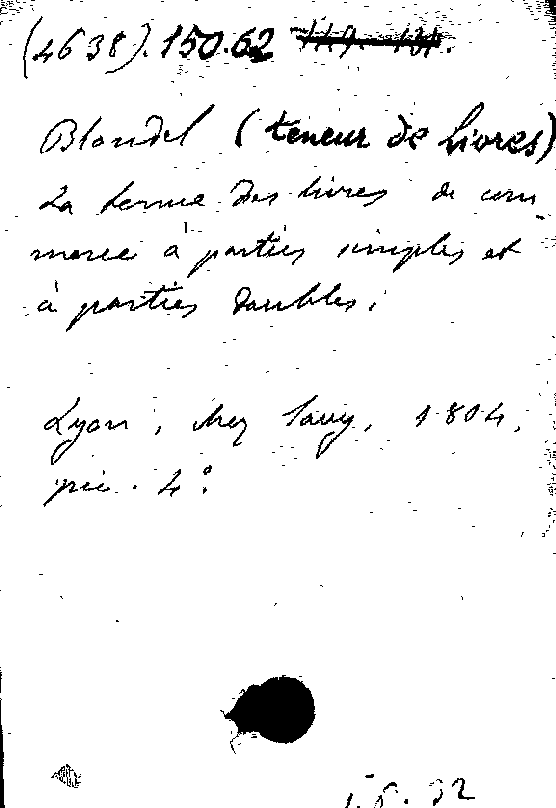 (4638).150.62
Blondel (teneur de livres)
La tenue des livres de com-
merce à parties simples et
à parties doubles.
Lyon, chez Savy, 1804,
pie. 4°.